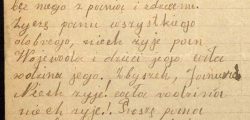 bez niego z polnoci i zdaemi.
Życzę panu wszystkiego
dobrego, niech żyje pan
Wojewoda i dzieci jego, cała
rodzina jego. Zbyszek, Janusz
Niech żyje! cała rodzina
niech żyje! Proszę pana